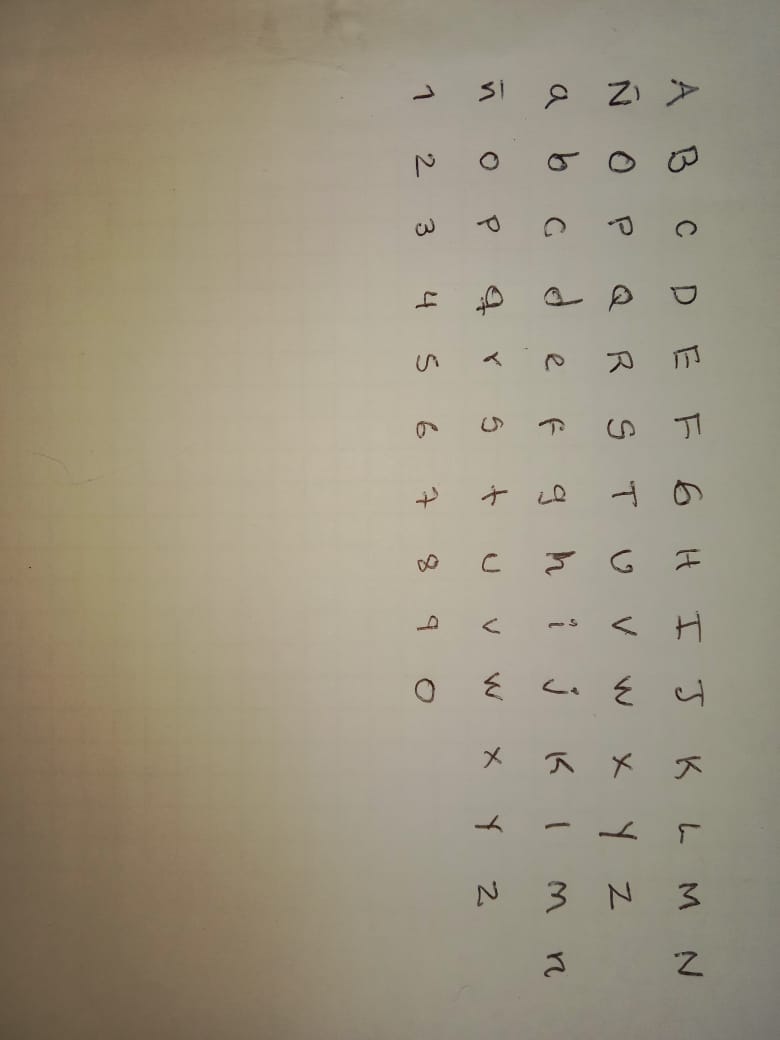 A B C D E F G H I J K L M N
Ñ O P Q R S T U V W X Y Z
a b c d e f g h i j k l m n
ñ o p q r s t u v w x y z
1 2 3 4 5 6 7 8 9 0